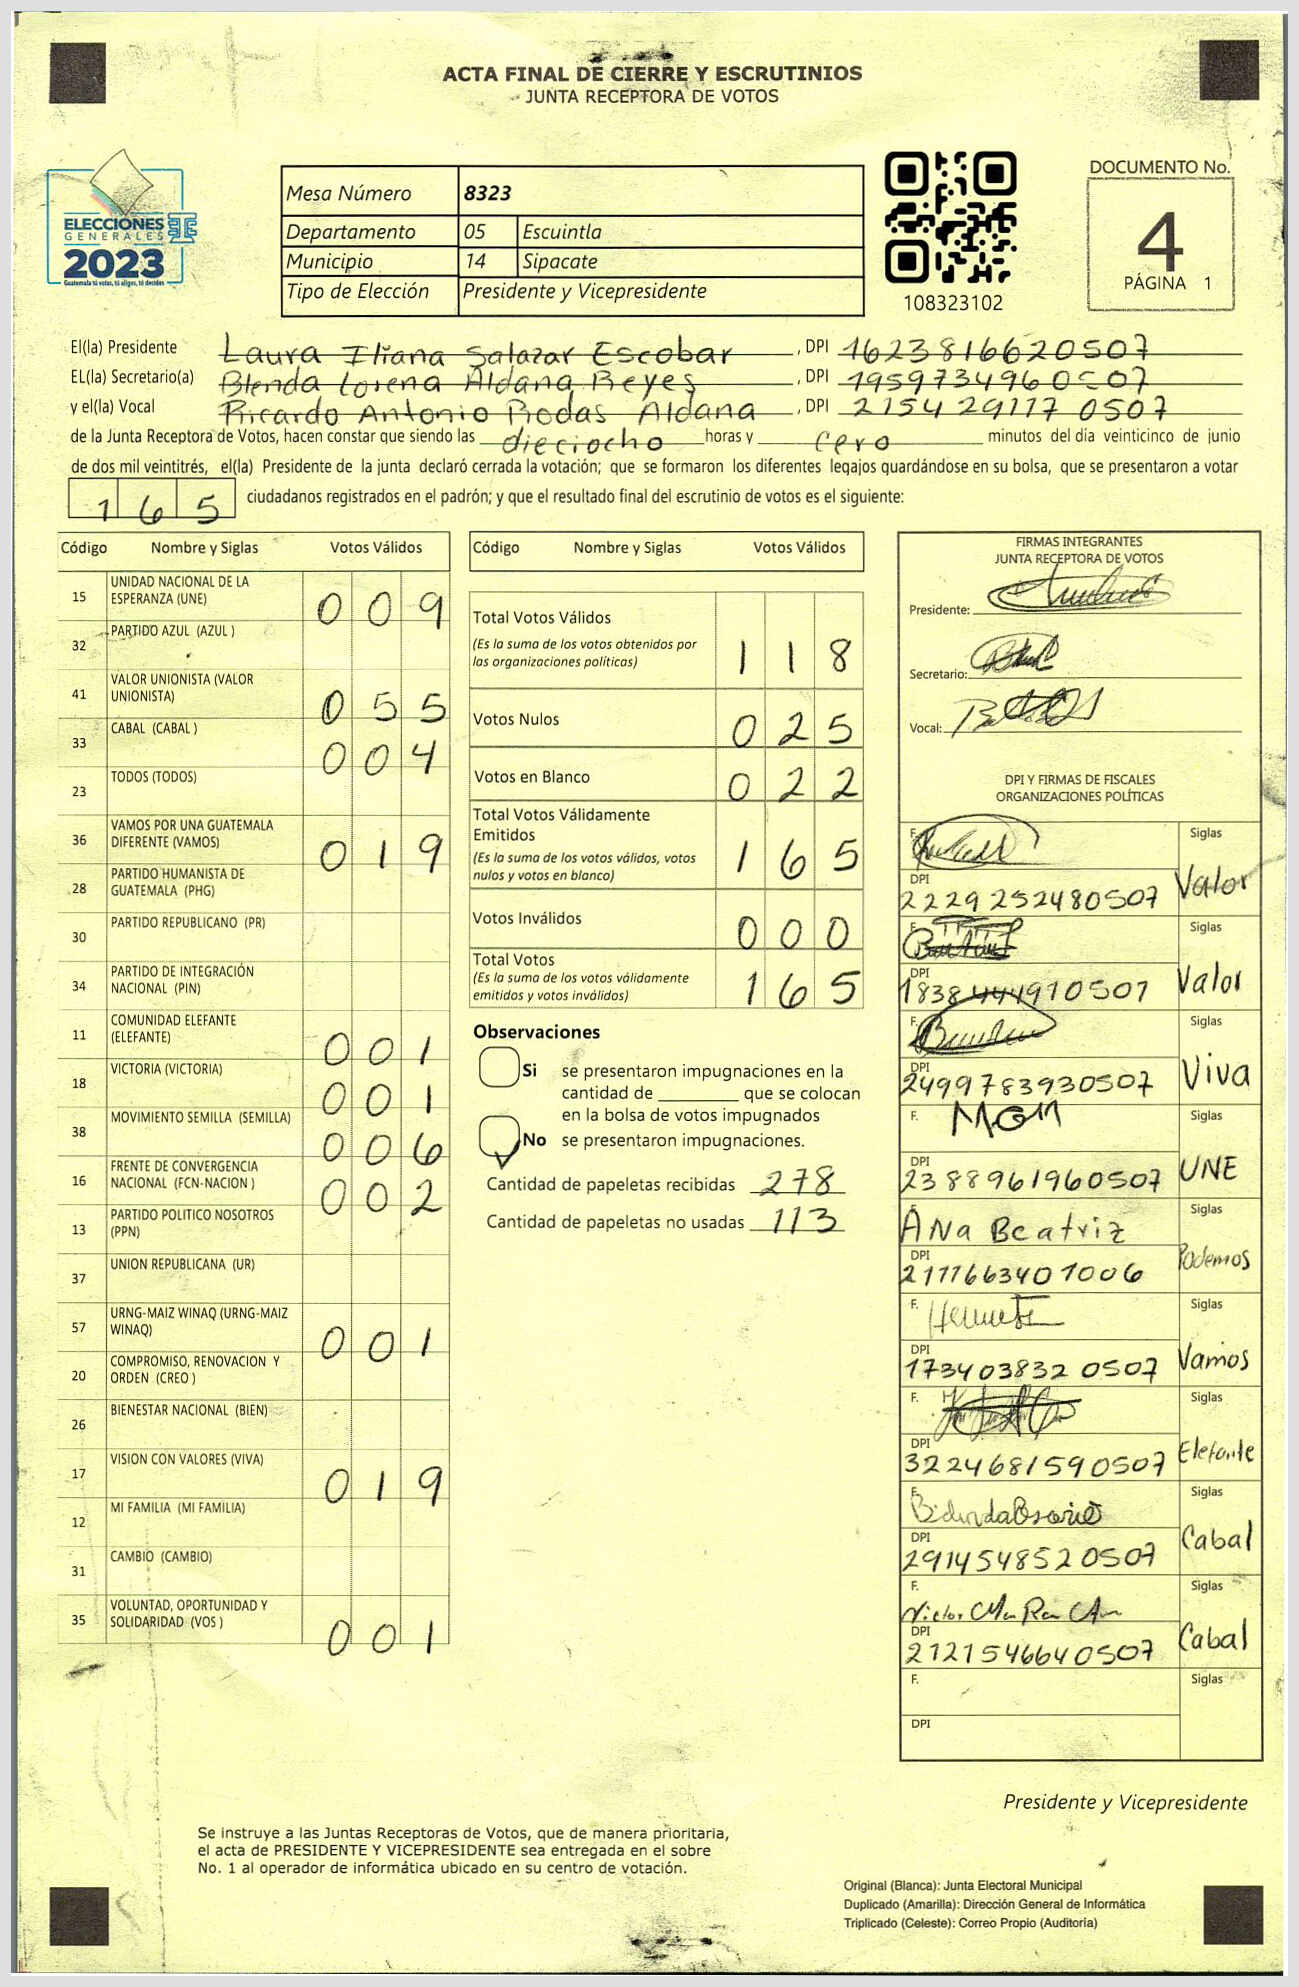 ACTA FINAL DE CIERRE Y ESCRUTINIOS
JUNTA RECEPTORA DE VOTOS
ELECCIONES
GENERALES
2023
Guatemala tú votas, tú eliges, tú decides
Mesa Número 8323
Departamento 05 Escuintla
Municipio 14 Sipacate
Tipo de Elección Presidente y Vicepresidente
108323102
DOCUMENTO No.
4
PÁGINA 1
El(la) Presidente Laura Iliana Salazar Escobar , DPI 1623816620507
EL(la) Secretario(a) Blenda Lorena Aldana Reyes , DPI 1959734960507
y el(la) Vocal Ricardo Antonio Rodas Aldana , DPI 2154291170507
de la Junta Receptora de Votos, hacen constar que siendo las dieciocho horas y cero minutos del día veinticinco de junio
de dos mil veintitrés, el(la) Presidente de la junta declaró cerrada la votación; que se formaron los diferentes legajos guardándose en su bolsa, que se presentaron a votar
165 ciudadanos registrados en el padrón; y que el resultado final del escrutinio de votos es el siguiente:
Código Nombre y Siglas Votos Válidos
15 UNIDAD NACIONAL DE LA ESPERANZA (UNE) 009
32 PARTIDO AZUL (AZUL )
41 VALOR UNIONISTA (VALOR UNIONISTA) 055
33 CABAL (CABAL ) 004
23 TODOS (TODOS)
36 VAMOS POR UNA GUATEMALA DIFERENTE (VAMOS) 019
28 PARTIDO HUMANISTA DE GUATEMALA (PHG)
30 PARTIDO REPUBLICANO (PR)
34 PARTIDO DE INTEGRACIÓN NACIONAL (PIN)
11 COMUNIDAD ELEFANTE (ELEFANTE) 001
18 VICTORIA (VICTORIA) 001
38 MOVIMIENTO SEMILLA (SEMILLA) 006
16 FRENTE DE CONVERGENCIA NACIONAL (FCN-NACION ) 002
13 PARTIDO POLITICO NOSOTROS (PPN)
37 UNION REPUBLICANA (UR)
57 URNG-MAIZ WINAQ (URNG-MAIZ WINAQ) 001
20 COMPROMISO, RENOVACION Y ORDEN (CREO )
26 BIENESTAR NACIONAL (BIEN)
17 VISION CON VALORES (VIVA) 019
12 MI FAMILIA (MI FAMILIA)
31 CAMBIO (CAMBIO)
35 VOLUNTAD, OPORTUNIDAD Y SOLIDARIDAD (VOS ) 001
Código Nombre y Siglas Votos Válidos
Total Votos Válidos 118
(Es la suma de los votos obtenidos por
las organizaciones políticas)
Votos Nulos 025
Votos en Blanco 022
Total Votos Válidamente
Emitidos 165
(Es la suma de los votos válidos, votos
nulos y votos en blanco)
Votos Inválidos 000
Total Votos 165
(Es la suma de los votos válidamente
emitidos y votos inválidos)
Observaciones
Si se presentaron impugnaciones en la
cantidad de ________ que se colocan
en la bolsa de votos impugnados
No se presentaron impugnaciones.
Cantidad de papeletas recibidas 278
Cantidad de papeletas no usadas 113
FIRMAS INTEGRANTES
JUNTA RECEPTORA DE VOTOS
Presidente:
Secretario:
Vocal:
DPI Y FIRMAS DE FISCALES
ORGANIZACIONES POLÍTICAS
F. Siglas
DPI 2229252480507 Valor
F. Siglas
DPI Valor
F. Siglas
DPI 2499783930507 Viva
F. MGM Siglas
DPI 2388961960507 UNE
Ana Beatriz Siglas
DPI 2111663401006 Podemos
F. Siglas
DPI 1734038320507 Vamos
F. Siglas
DPI 3224681590507 Elefante
F. Siglas
DPI 2914548520507 Cabal
F. Siglas
DPI 2121546640507 Cabal
F. Siglas
DPI
Presidente y Vicepresidente
Se instruye a las Juntas Receptoras de Votos, que de manera prioritaria,
el acta de PRESIDENTE Y VICEPRESIDENTE sea entregada en el sobre
No. 1 al operador de informática ubicado en su centro de votación.
Original (Blanca): Junta Electoral Municipal
Duplicado (Amarilla): Dirección General de Informática
Triplicado (Celeste): Correo Propio (Auditoria)